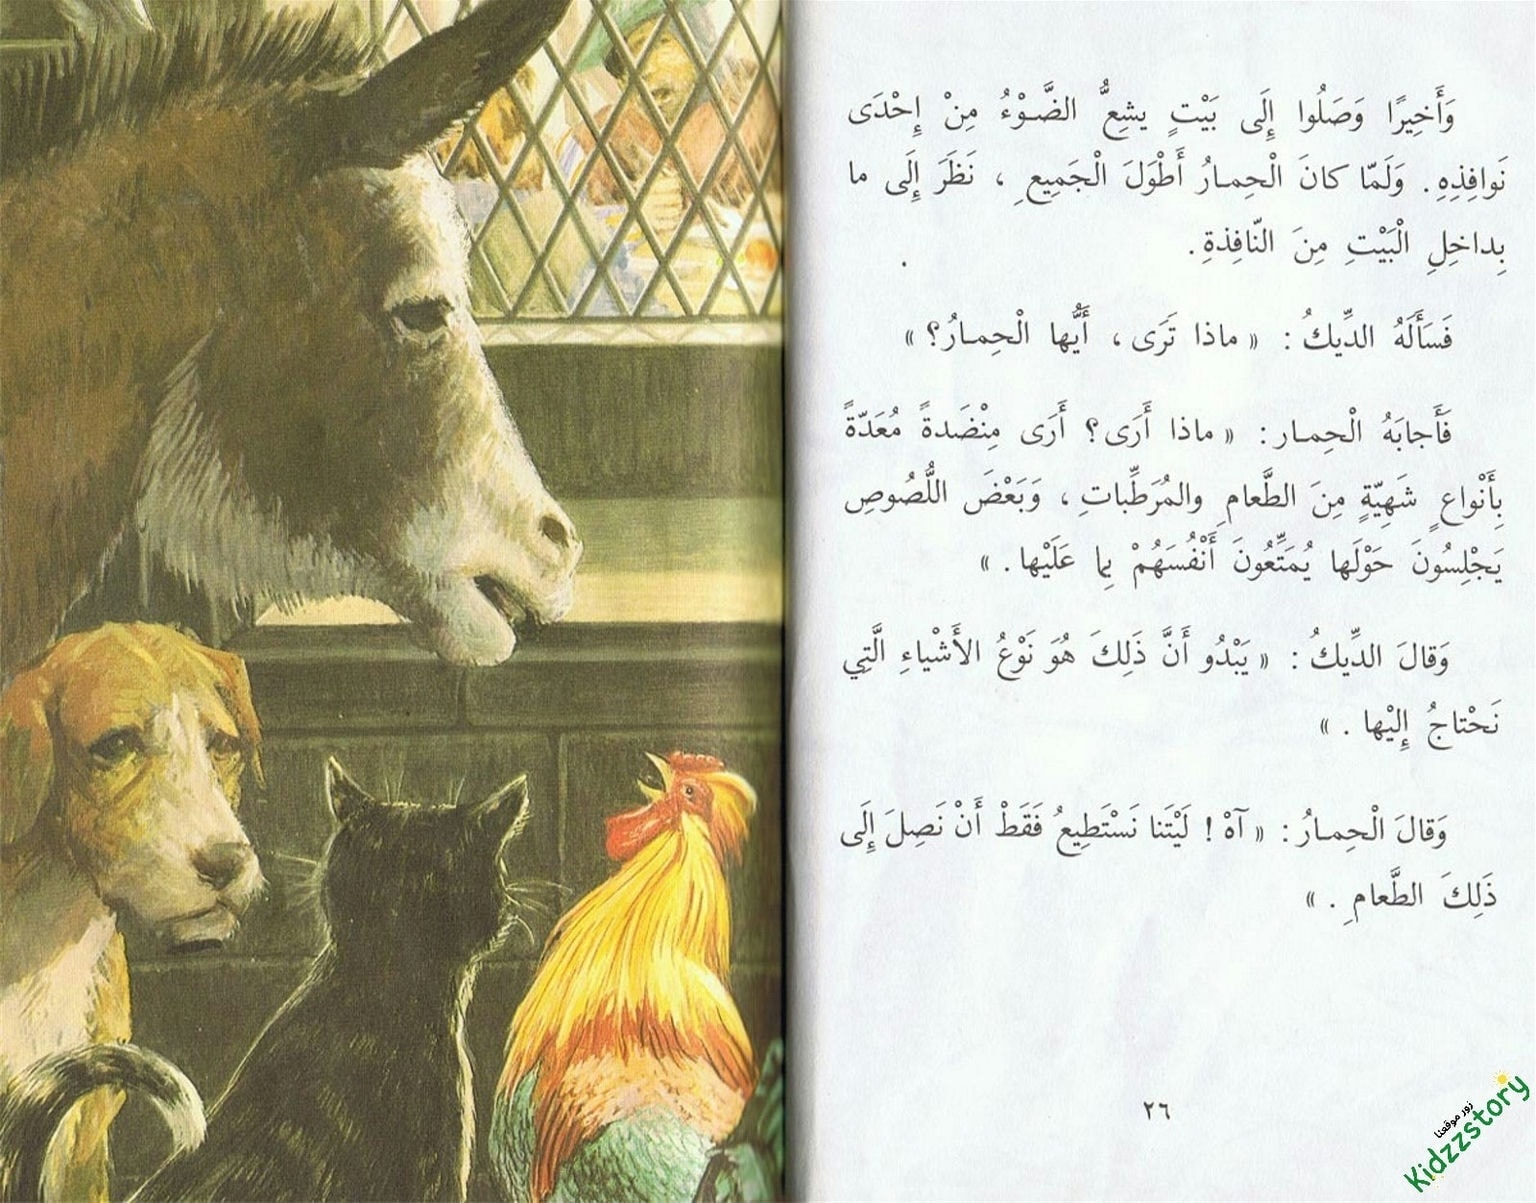 وَأَخِيرًا وَصَلُوا إِلَى بَيْتٍ يشِعُّ الضَّوْءُ مِنْ إِحْدَى
نَوافِذِهِ. وَلَمّا كانَ الْحِمارُ أَطْوَلَ الْجَمِيعِ ، نَظَرَ إِلَى ما
بِداخِلِ الْبَيْتِ مِنَ النّافِذةِ.
فَسَأَلَهُ الدِّيكُ : « ماذا تَرَى ، أَيُّها الْحِمارُ؟ »
فَأَجابَهُ الْحِمار : « ماذا أَرَى؟ أَرَى مِنْضَدةً مُعَدّةً
بِأَنْواعٍ شَهِيّةٍ مِنَ الطَّعامِ والمُرَطِّباتِ ، وَبَعْضَ اللُّصُوصِ
يَجْلِسُونَ حَوْلَها يُمَتِّعُونَ أَنْفُسَهُمْ بِما عَلَيْها . »
وَقالَ الدِّيكُ : « يَبْدُو أَنَّ ذَلِكَ هُوَ نَوْعُ الأَشْياءِ الَّتِي
نَحْتاجُ إِليْها . »
وَقالَ الْحِمارُ : « آهْ ! لَيْتَنا نَسْتَطِيعُ فَقَطْ أَنْ نَصِلَ إِلَى
ذَلِكَ الطَّعامِ . »
٢٦
زور موقعنا
Kidzzstory